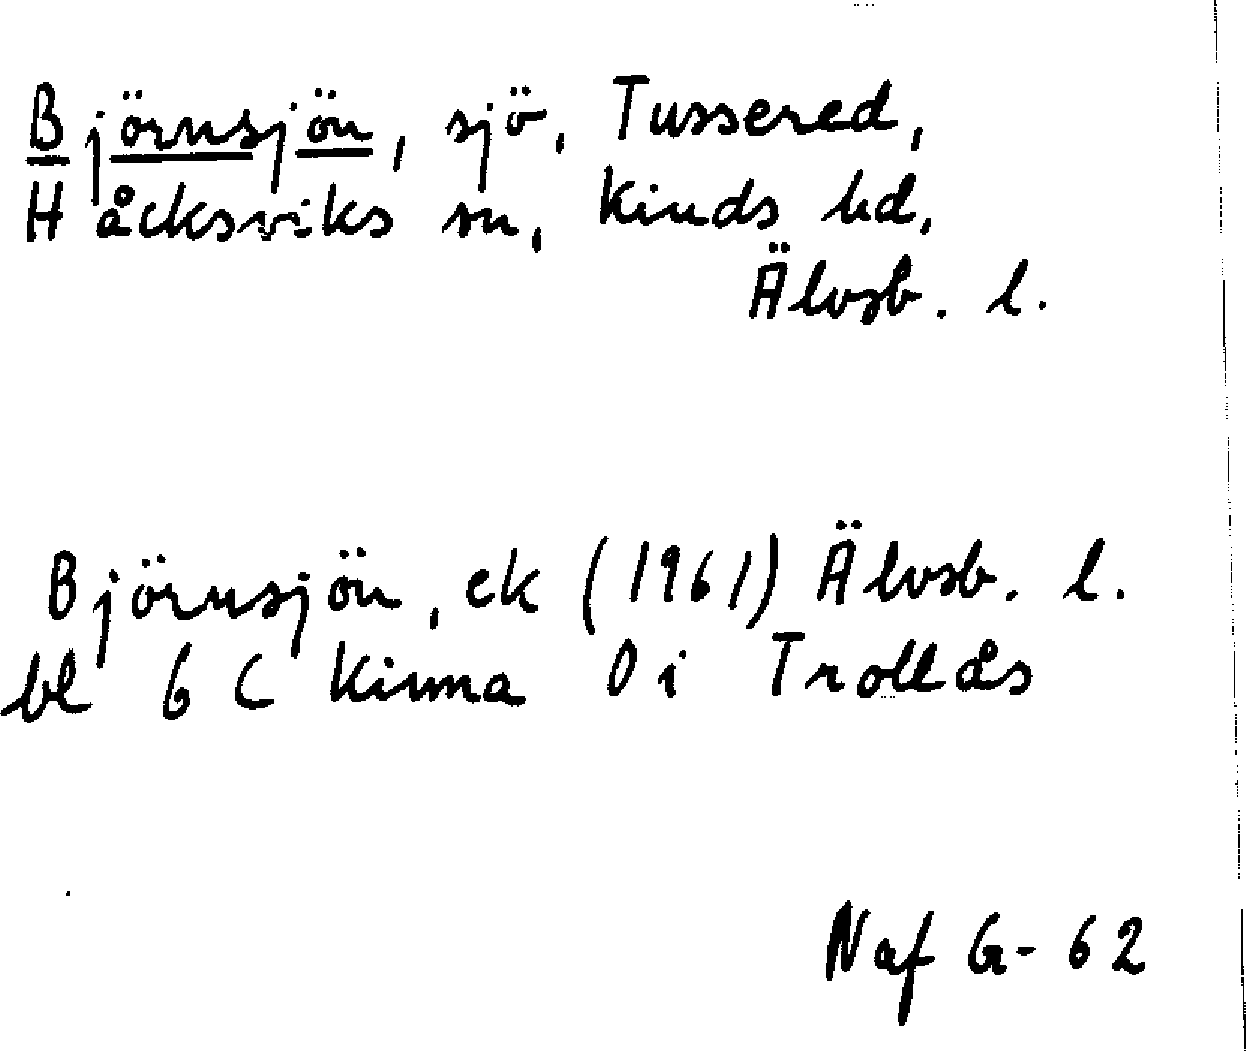 Björnsjön, sjö, Tussered,
Håcksviks sn, Kinds hd,
Älvsb. l.
Björnsjön, ek (1961) Älvsb. l.
bl 6 C Kinna O i Trollås
Naf G-62